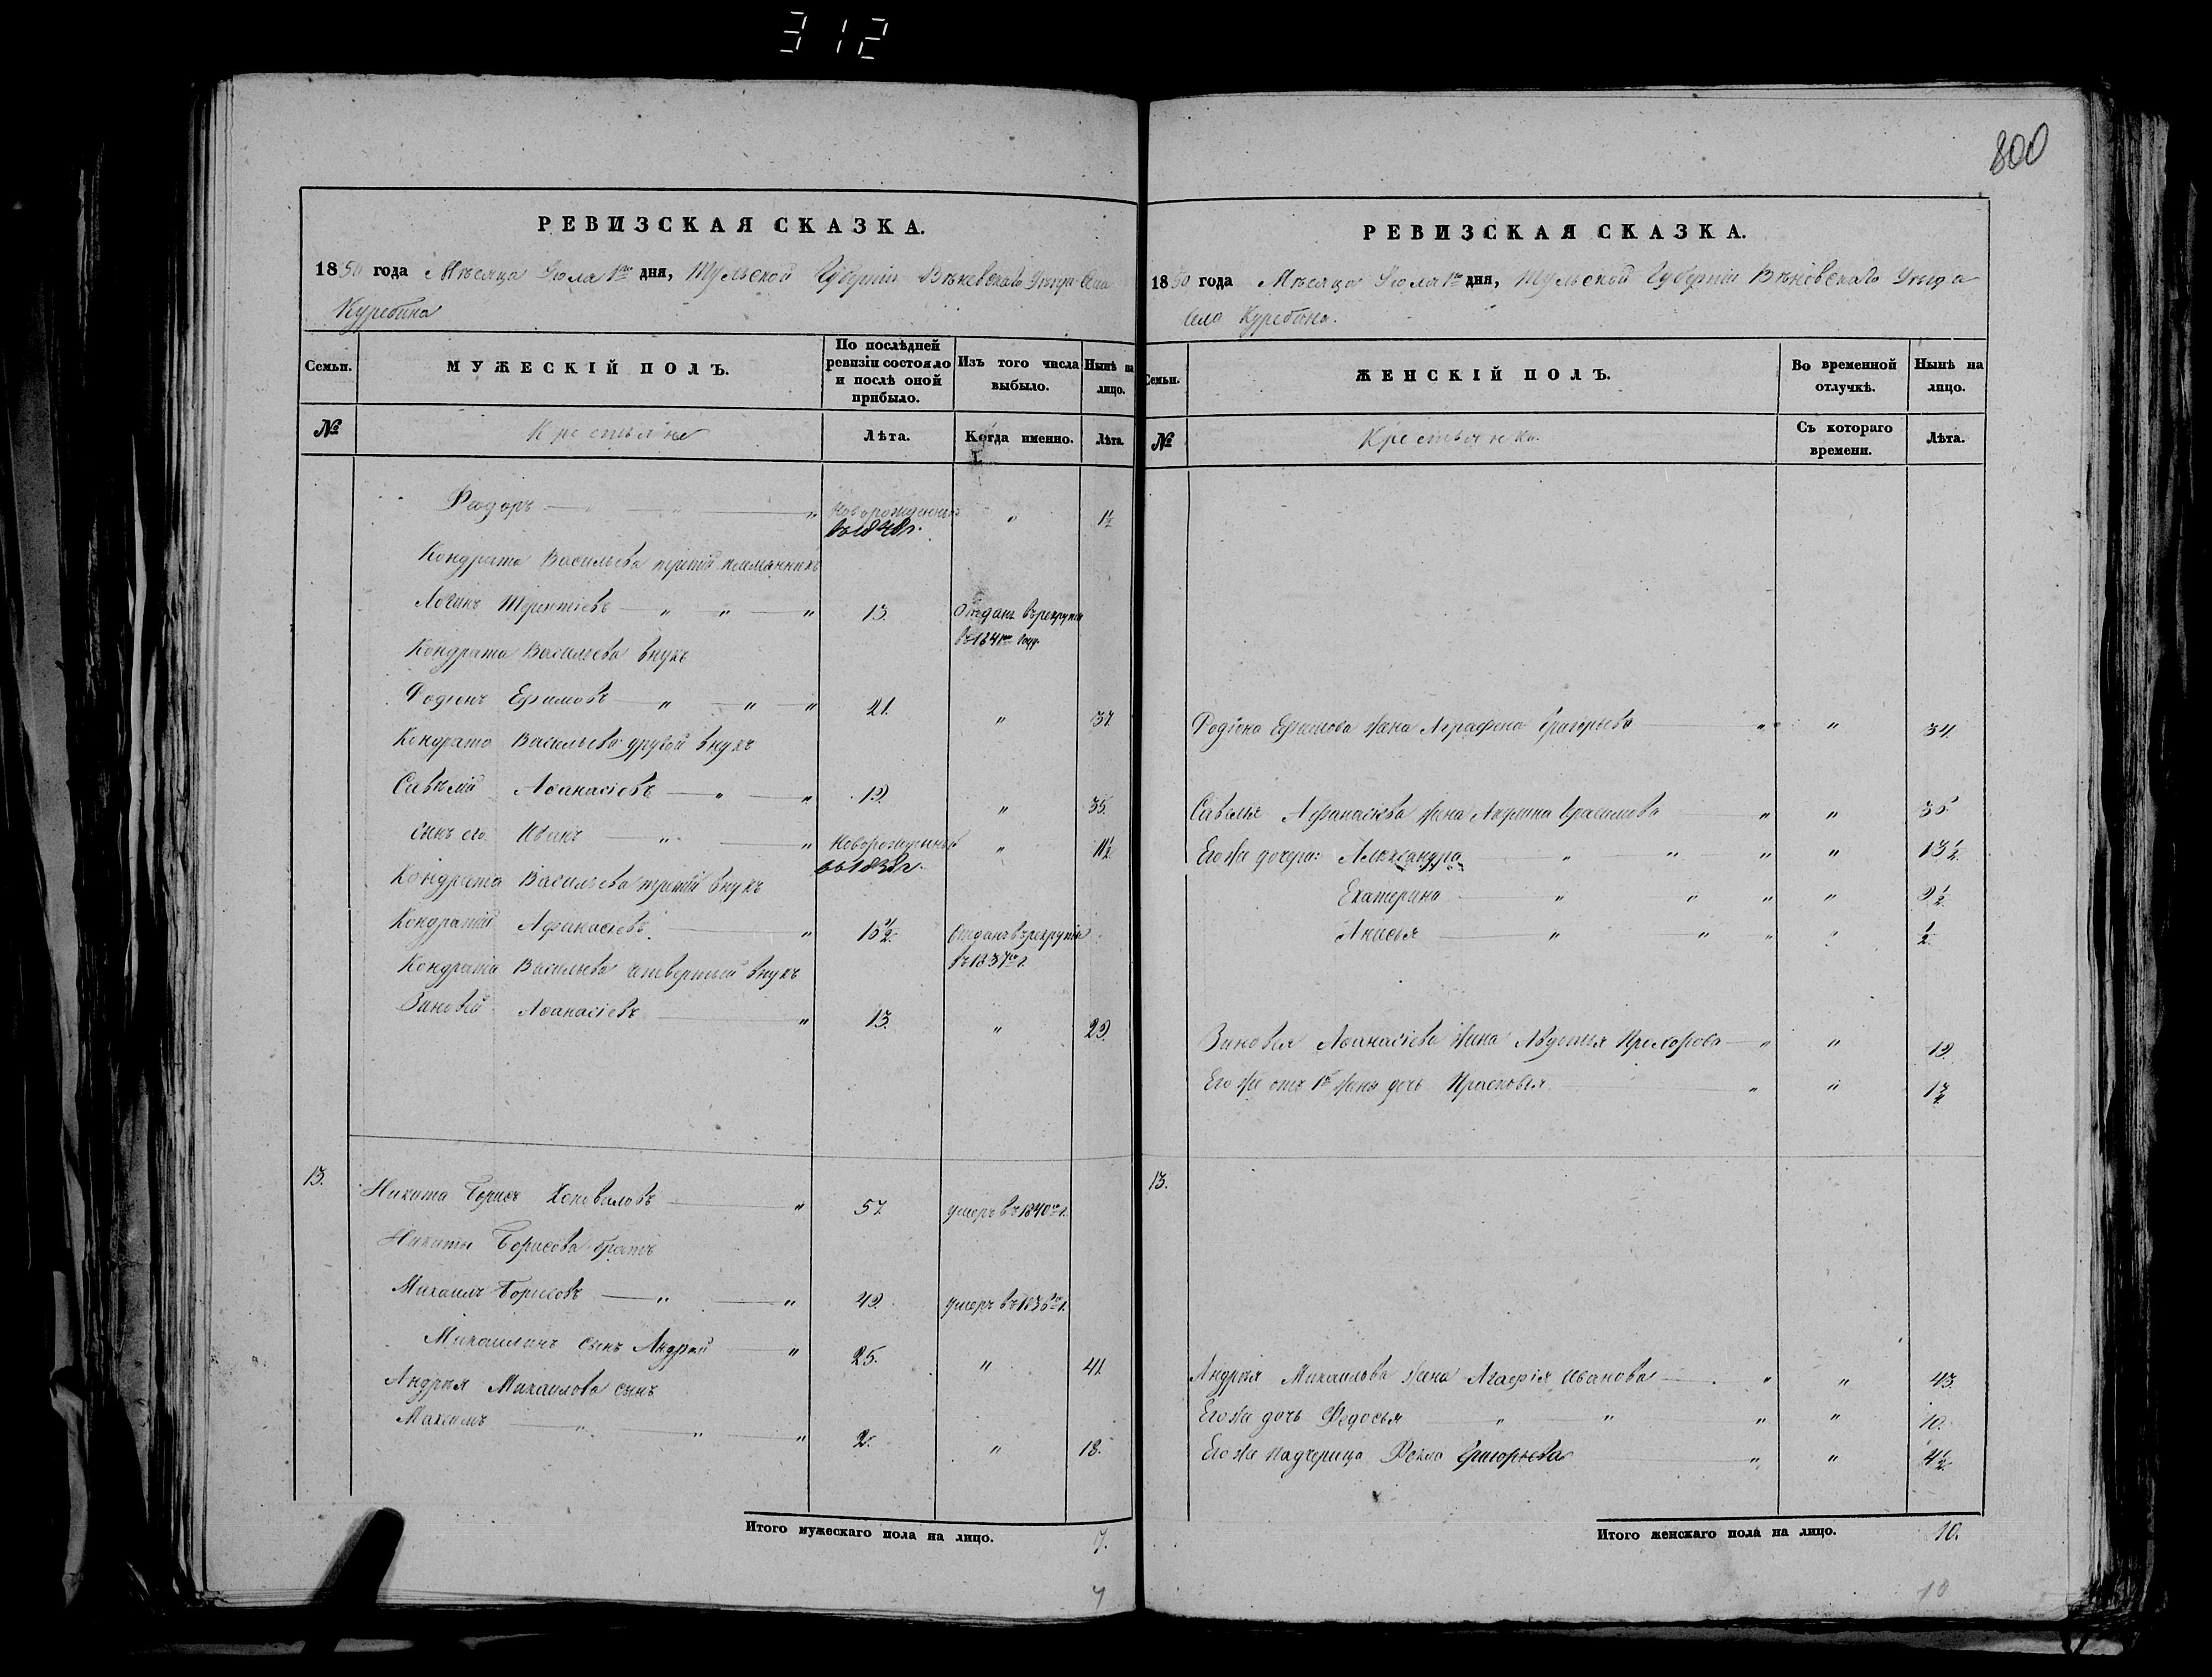 312
800
РЕВИЗСКАЯ СКАЗКА.
1850 года Мѣсяца Іюля 1го дня, Тульской Губерніи Вѣневскаго Уѣзда Села
Куребина
Семьи.
МУЖЕСКІЙ ПОЛЪ.
По послѣдней ревизіи состояло и послѣ оной прибыло.
Изъ того числа выбыло.
Нынѣ на лицо.
№
Крестьяне
Лѣта.
Когда именно.
Лѣта.
Фадоръ — " — " — " Новорожденный " 1½
въ 1848г.
Кондрата Васильева третій племянникъ
Логинъ Терентіевъ — " " — " 13. Отданъ въ рекруты
въ 1841мъ году
Кондрата Васильева внукъ
Родіонъ Ефимовъ — " — " — " 21. " 37
Кондрата Васильева другой внукъ
Савѣлій Афанасіевъ — " — " 19. " 35.
сынъ его Иванъ — " — " Новорожденный " 11½
въ 1838г.
Кондрата Васильева третій внукъ
Кондратій Афанасіевъ — " 15½. Отданъ въ рекруты
въ 1837мъ г.
Кондратія Васильева четвертый внукъ
Зиновій Афанасіевъ — " 13. " 29.
13.
Никита Борисъ Коноваловъ — " 57. умеръ въ 1840мъ г.
Никиты Борисова братъ
Михаилъ Борисовъ — " — " 49. умеръ въ 1836мъ г.
Михаиловъ сынъ Андрей — " 25. " 41.
Андрея Михаилова сынъ
Максимъ — " " " 2. " 18.
Итого мужескаго пола на лицо. 7.
7
РЕВИЗСКАЯ СКАЗКА.
1850 года Мѣсяца Іюля 1го дня, Тульской Губерніи Вѣневскаго Уѣзда
села Куребина.
Семьи.
ЖЕНСКІЙ ПОЛЪ.
Во временной отлучкѣ.
Нынѣ на лицо.
№
Крестьянки.
Съ котораго времени.
Лѣта.
Родіона Ефимова жена Аграфена Григорьева " " 34.
Савелья Афанасіева жена Акулина Герасимова — " " 35.
Его же дочери: Александра — " " " " 13½.
Екатерина — " " " " 9½
Анисья — " " " " ½
Зиновея Афанасіева жена Авдотья Прохорова — " " 19.
Его же отъ 1й жены дочь Прасковья " " 1½
13.
Андрея Михаилова жена Агафія Иванова — " " 43.
Его же дочь Федосья — " " " " 10.
Его же падчерица Фекла Григорьева — " " 4½.
Итого женскаго пола на лицо. 10.
10